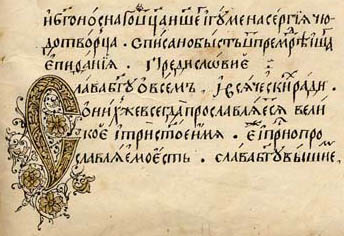 и бг҃оноснаго ѿц҃а нш҃его игꙋмена сергїа чю
дотворца . списано бысть ѿ премⷣрѣиша
епифанїа . Предисловїе .
Слава бг҃ꙋ о всемъ . ї всяческиⷯ ради .
о ниⷯже всегда прославляеⷮся вели
кое ї тристое имя . еⷤ ї присно про
славляемо есть . слава бг҃ꙋ вышнеⷨ